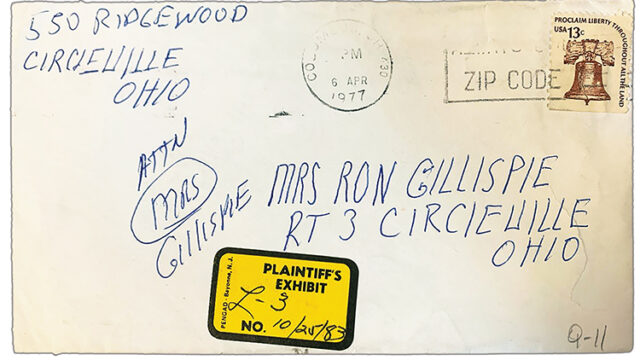 550 RIDGEWOOD
CIRCIEUILLE
OHIO
PM
6 APR
1977
ZIP CODE
PROCLAIM LIBERTY THROUGHOUT ALL THE LAND
USA 13c
ATTN
MRS
GILLISPIE
MRS RON GILLISPIE
RT 3 CIRCIEUILLE
OHIO
PENGAD-Bayonne, N.J.
PLAINTIFF'S
EXHIBIT
L-3
NO. 10/25/83
Q-11